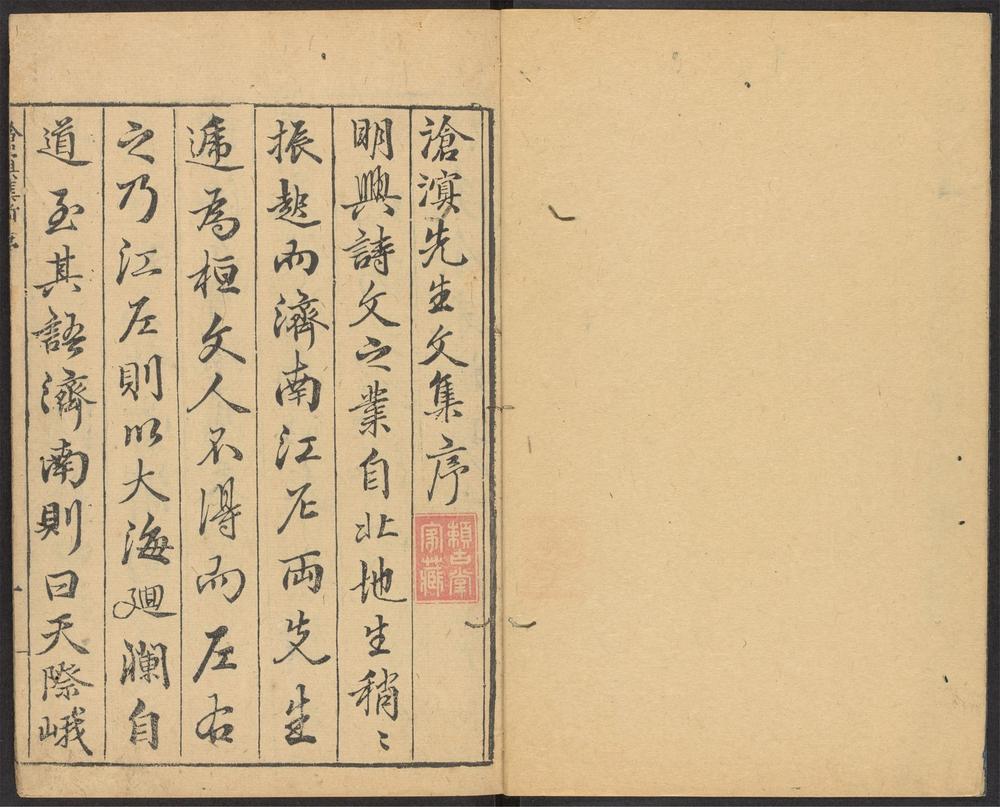 滄溟先生文集序
賴古堂
家藏
明興詩文之業自北地生稍〻
振起而濟南江左兩先生
遞為桓文人不得而左右
之乃江左則以大海廻瀾自
道至其語濟南則曰天際峨